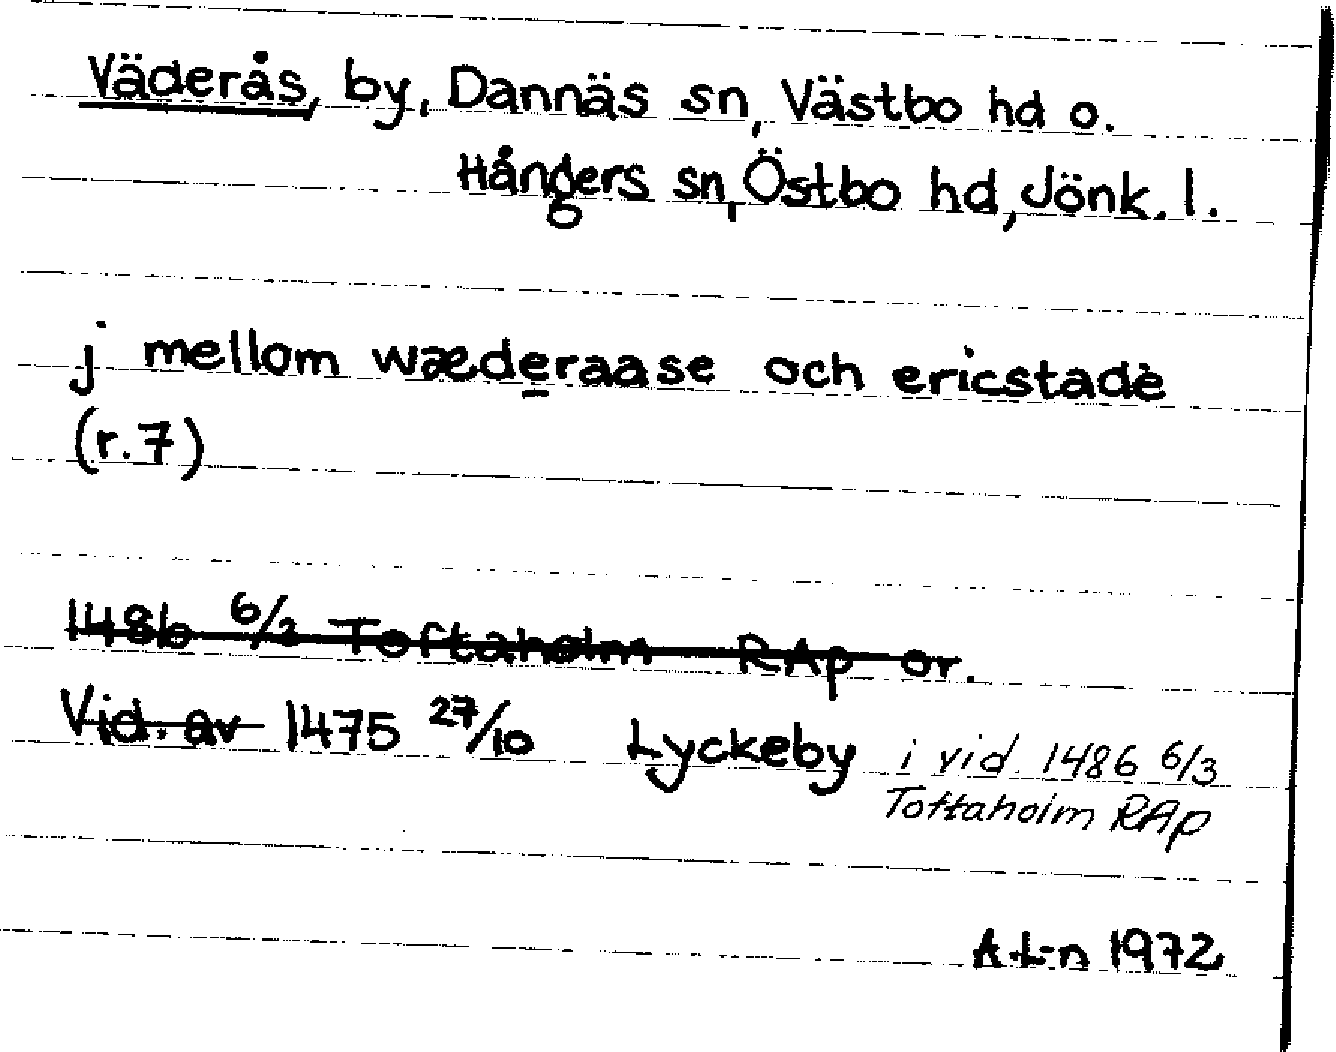 Väderås, by, Dannäs sn, Västbo hd o.
Hångers sn, Östbo hd, Jönk. l.
j mellom wæderaase och ericstade
(r.7)
1486 6/3 Toftaholm RAp or.
Vid. av 1475 27/10 Lyckeby i vid. 1486 6/3
Toftaholm RAp
A L-n 1972